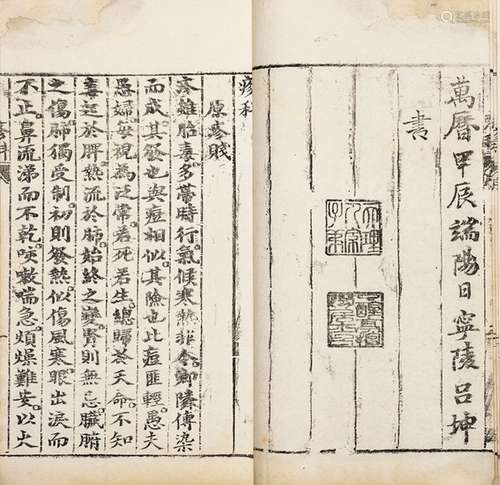 萬曆甲辰端陽日寧陵呂坤
書
疹科
原疹賦
疹雖胎毒多帶時行氣候寒熱非令鄉隣傳染
而成其發也與痘相似其險也比痘匪輕愚夫
愚婦每視為泛常若死若生總歸蒼天命不知
毒起於脾熱流於肺始終之變腎則無忌臟腑
之傷肺獨受制初則發熱似傷風寒眼出淚而
不止鼻流涕而不乾咳嗽喘急煩燥難安以火